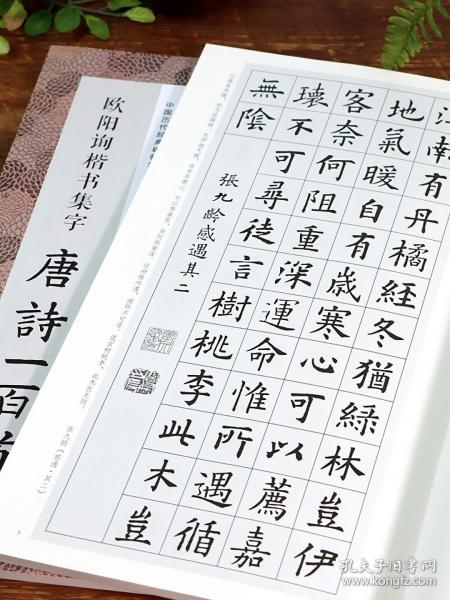 江南有丹橘經冬猶綠林豈伊
地氣暖自有歲寒心可以薦嘉
客奈何阻重深運命惟所遇循
環不可尋徒言樹桃李此木豈
無陰
張九齡感遇其二
张九龄《感遇·其二》
中国历代经典碑
欧阳询楷书集字
唐詩一百
孔夫子旧书网
www.kongfz.com